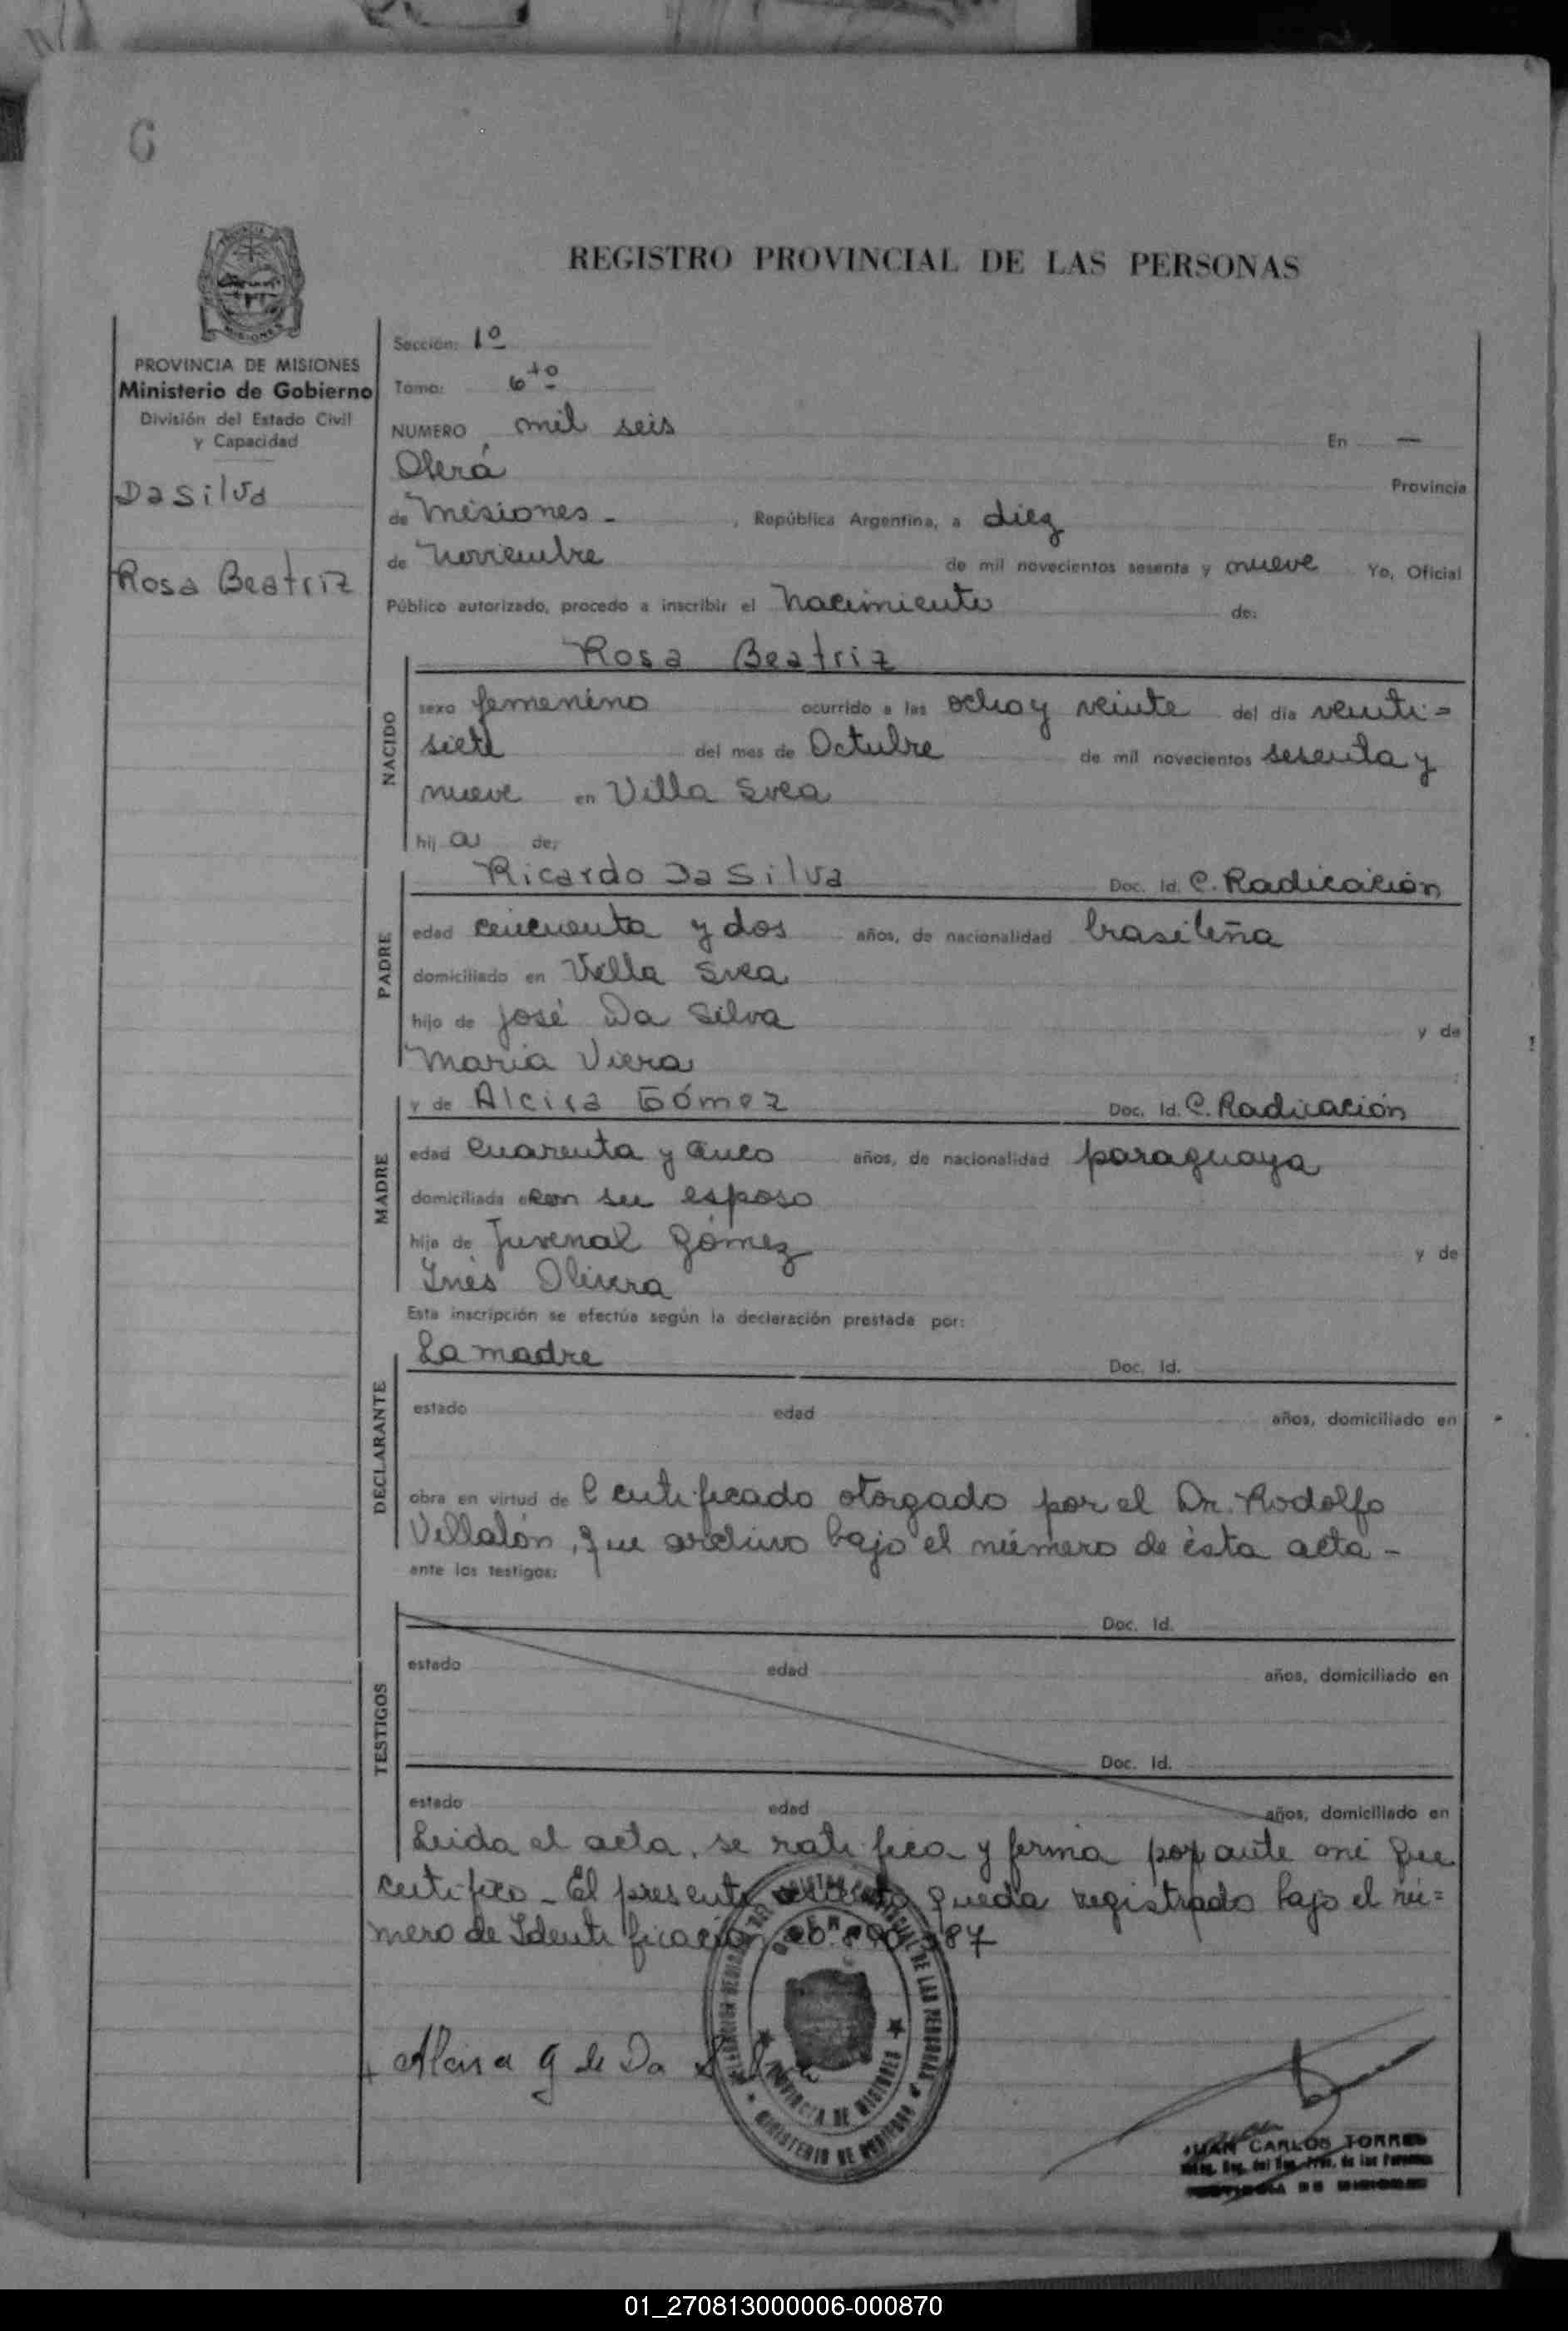 6
REGISTRO PROVINCIAL DE LAS PERSONAS
PROVINCIA DE MISIONES
Ministerio de Gobierno
División del Estado Civil
y Capacidad
Da Silva
Rosa Beatriz
Sección: 1º
Tomo: 6to
NUMERO mil seis En —
Oberá Provincia
de Misiones - , República Argentina, a diez
de Noviembre de mil novecientos sesenta y nueve Yo, Oficial
Público autorizado, procedo a inscribir el Nacimiento de:
Rosa Beatriz
NACIDO
sexo femenino ocurrido a las ocho y veinte del día veinti=
siete del mes de Octubre de mil novecientos sesenta y
nueve en Villa Svea
hij a de;
PADRE
Ricardo Da Silva Doc. Id. C. Radicación
edad cincuenta y dos años, de nacionalidad brasileña
domiciliado en Villa Svea
hijo de José Da Silva y de
María Viera
MADRE
y de Alcira Gómez Doc. Id. C. Radicación
edad cuarenta y cinco años, de nacionalidad paraguaya
domiciliada con su esposo
hija de Juvenal Gómez y de
Inés Olivera
Esta inscripción se efectúa según la declaración prestada por:
DECLARANTE
La madre Doc. Id.
estado edad años, domiciliado en
obra en virtud de Certificado otorgado por el Dr. Rodolfo
Villalón, que archivo bajo el número de ésta acta -
ante los testigos:
TESTIGOS
Doc. Id.
estado edad años, domiciliado en
Doc. Id.
estado edad años, domiciliado en
Leida el acta, se ratifica y firma por ante mi que
certifico - El presente queda registrado bajo el nú=
mero de Identificación
Alcira G de Da Silva
PROVINCIA DE MISIONES
MINISTERIO DE GOBIERNO
JUAN CARLOS TORRES
PROVINCIA DE MISIONES
01_270813000006-000870